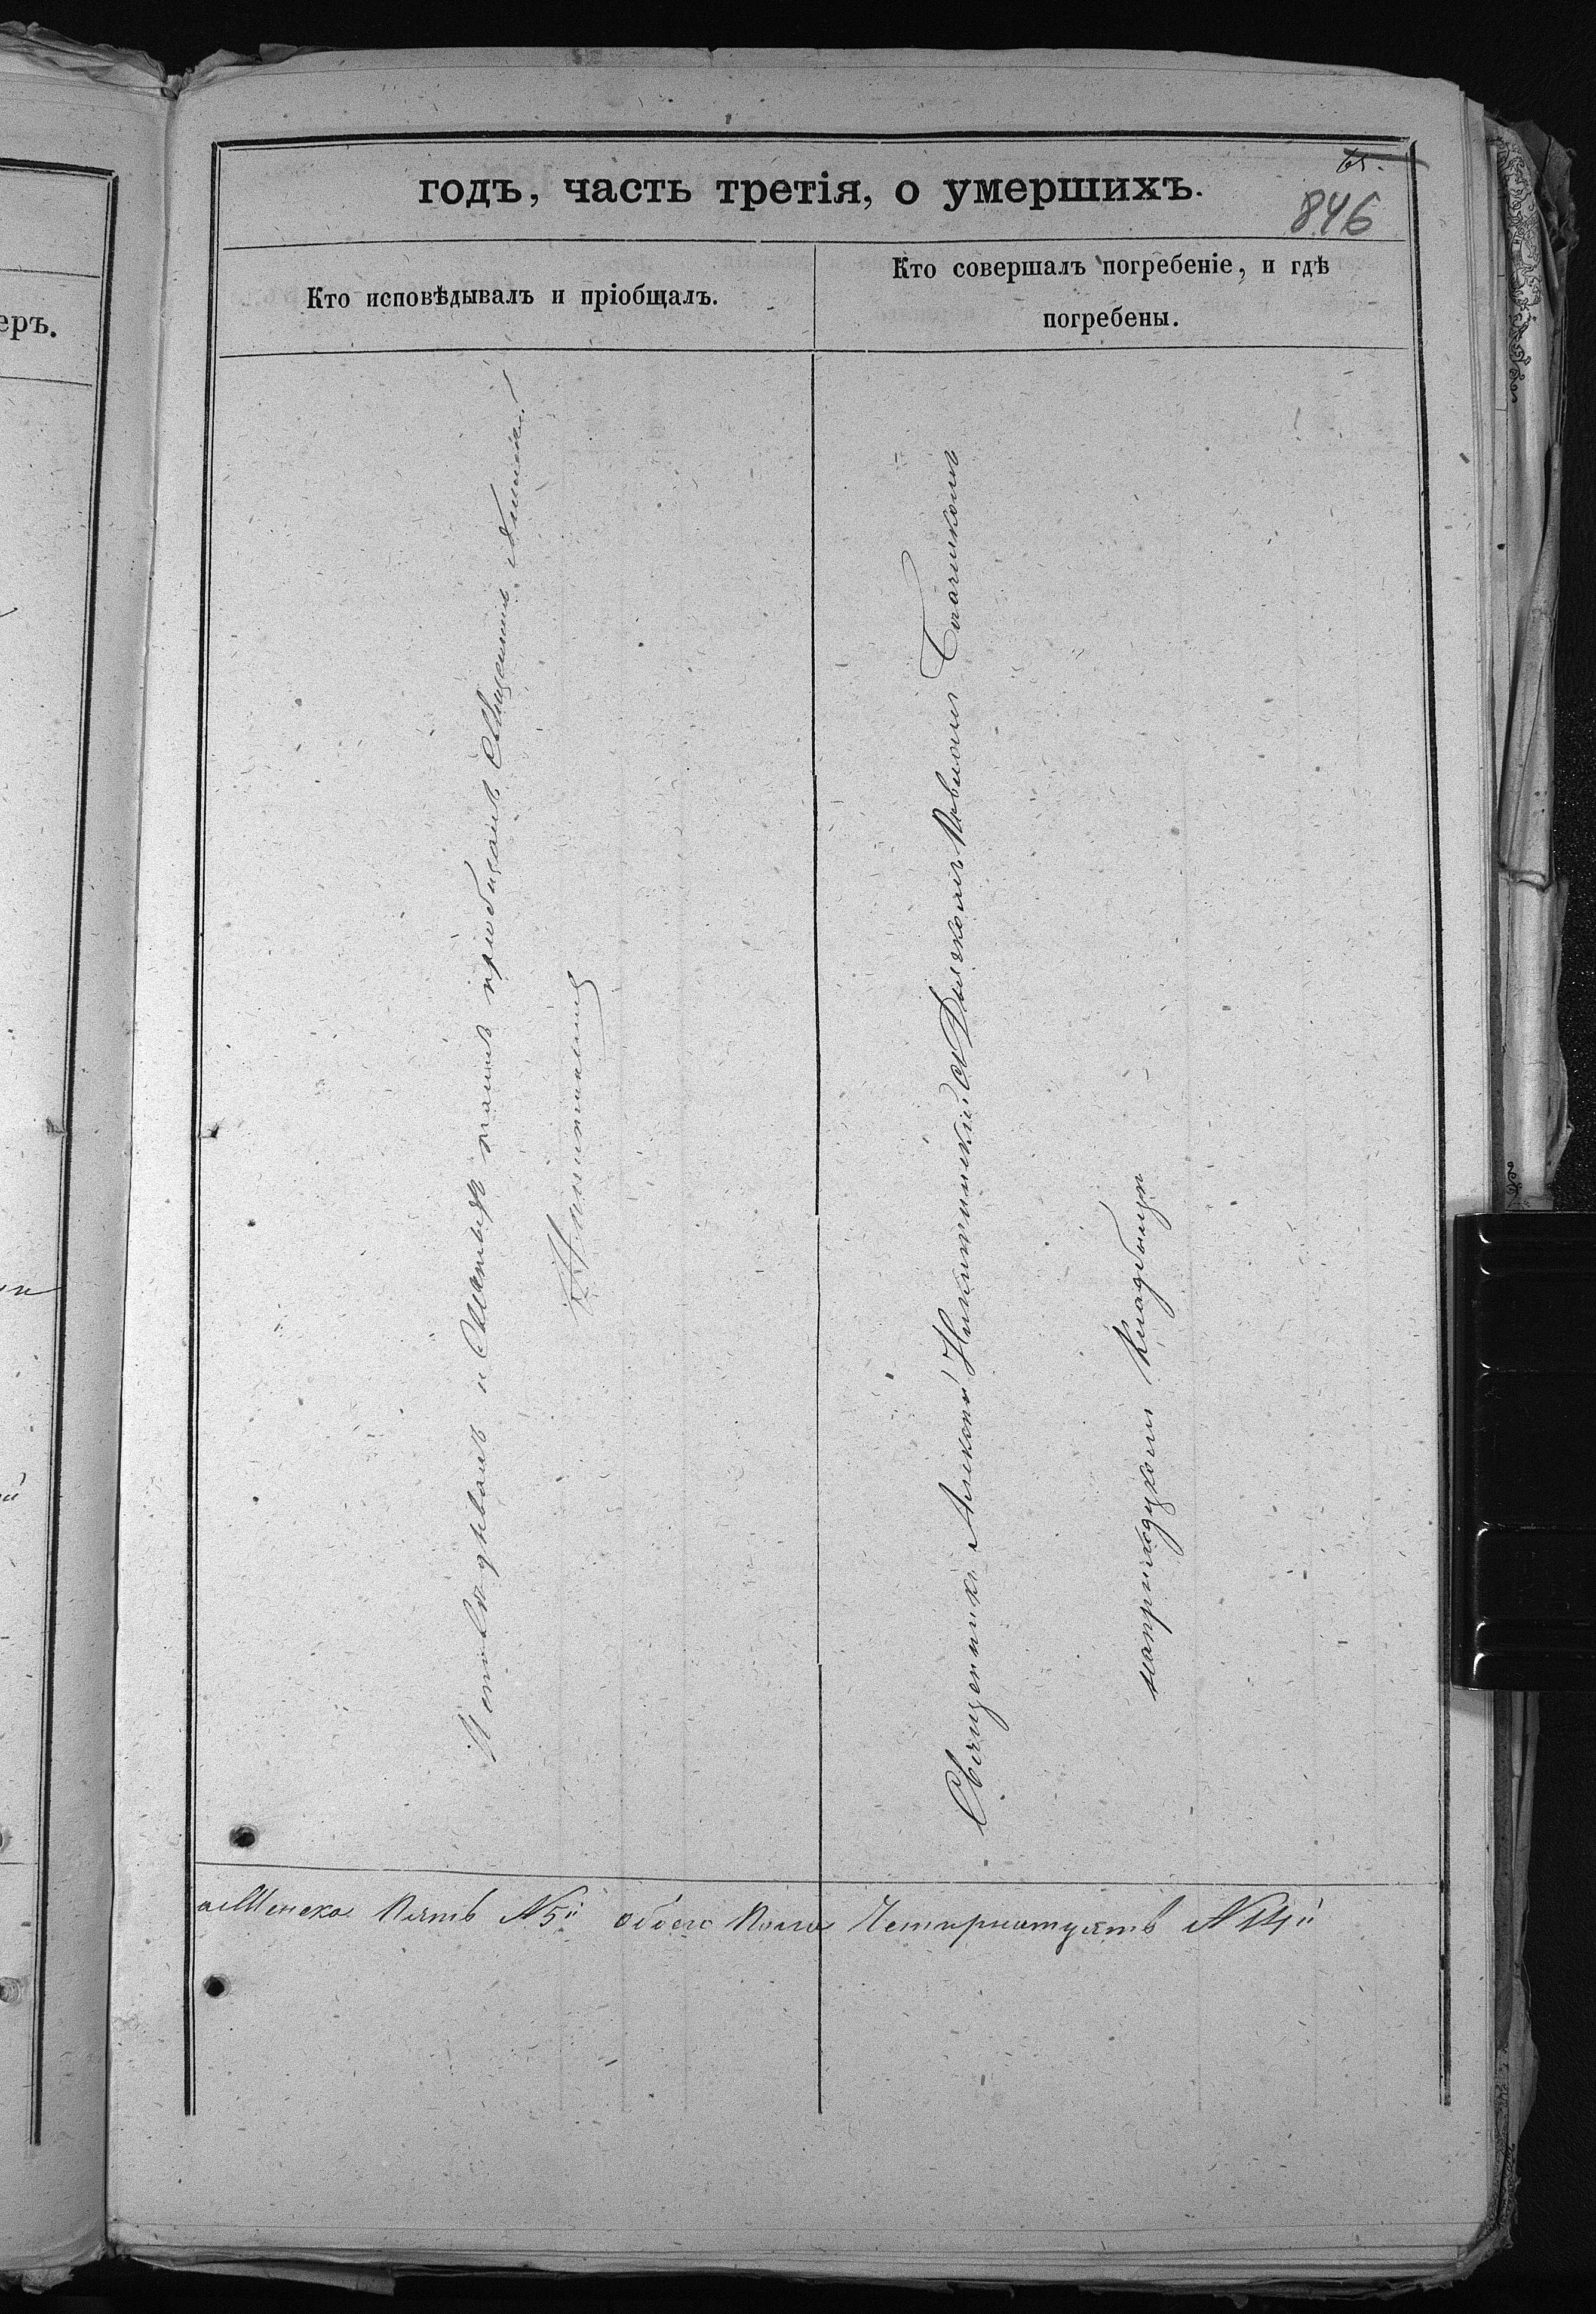 65.
годъ, часть третія, о умершихъ.
846
Кто исповѣдывалъ и пріобщалъ.
Кто совершалъ погребеніе, и гдѣ
погребены.
еръ.
Исповѣдывалъ и Св. тайнъ пріобщалъ Священникъ Алексій
Никитинский
Священникъ Алексѣй Никитинскій съ Дьячкомъ Павломъ
наприходскомъ Кладбищѣ
а Женска Пять №5" обоего Пола Четырнатцать №14"